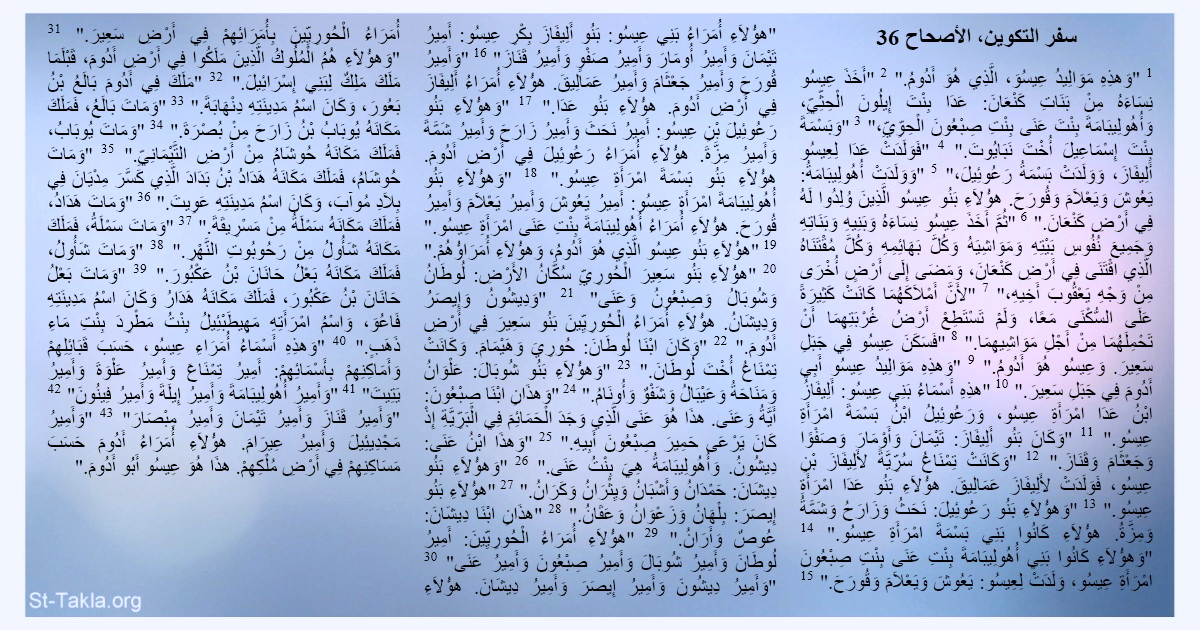 سفر التكوين، الأصحاح 36
1 "وَهذِهِ مَوَالِيدُ عِيسُوَ، الَّذِي هُوَ أَدُومُ." 2 "أَخَذَ عِيسُو
نِسَاءَهُ مِنْ بَنَاتِ كَنْعَانَ: عَدَا بِنْتَ إِيلُونَ الْحِثِّيِّ،
وَأُهُولِيبَامَةَ بِنْتَ عَنَى بِنْتِ صِبْعُونَ الْحِوِّيِّ،" 3 "وَبَسْمَةَ
بِنْتَ إِسْمَاعِيلَ أُخْتَ نَبَايُوتَ." 4 "فَوَلَدَتْ عَدَا لِعِيسُو
أَلِيفَازَ، وَوَلَدَتْ بَسْمَةُ رَعُوئِيلَ،" 5 "وَوَلَدَتْ أُهُولِيبَامَةُ:
يَعُوشَ وَيَعْلاَمَ وَقُورَحَ. هؤُلاَءِ بَنُو عِيسُو الَّذِينَ وُلِدُوا لَهُ
فِي أَرْضِ كَنْعَانَ." 6 "ثُمَّ أَخَذَ عِيسُو نِسَاءَهُ وَبَنِيهِ وَبَنَاتِهِ
وَجَمِيعَ نُفُوسِ بَيْتِهِ وَمَوَاشِيَهُ وَكُلَّ بَهَائِمِهِ وَكُلَّ مُقْتَنَاهُ
الَّذِي اقْتَنَى فِي أَرْضِ كَنْعَانَ، وَمَضَى إِلَى أَرْضٍ أُخْرَى
مِنْ وَجْهِ يَعْقُوبَ أَخِيهِ،" 7 "لأَنَّ أَمْلاَكَهُمَا كَانَتْ كَثِيرَةً
عَلَى السُّكْنَى مَعًا، وَلَمْ تَسْتَطِعْ أَرْضُ غُرْبَتِهِمَا أَنْ
تَحْمِلَهُمَا مِنْ أَجْلِ مَوَاشِيهِمَا." 8 "فَسَكَنَ عِيسُو فِي جَبَلِ
سَعِيرَ. وَعِيسُو هُوَ أَدُومُ." 9 "وَهذِهِ مَوَالِيدُ عِيسُو أَبِي
أَدُومَ فِي جَبَلِ سَعِيرَ." 10 "هذِهِ أَسْمَاءُ بَنِي عِيسُو: أَلِيفَازُ
ابْنُ عَدَا امْرَأَةِ عِيسُو، وَرَعُوئِيلُ ابْنُ بَسْمَةَ امْرَأَةِ
عِيسُو." 11 "وَكَانَ بَنُو أَلِيفَازَ: تَيْمَانَ وَأَوْمَارَ وَصَفْوًا
وَجَعْثَامَ وَقَنَازَ." 12 "وَكَانَتْ تِمْنَاعُ سُرِّيَّةً لأَلِيفَازَ بْنِ
عِيسُو، فَوَلَدَتْ لأَلِيفَازَ عَمَالِيقَ. هؤُلاَءِ بَنُو عَدَا امْرَأَةِ
عِيسُو." 13 "وَهؤُلاَءِ بَنُو رَعُوئِيلَ: نَحَثُ وَزَارَحُ وَشَمَّةُ
وَمِزَّةُ. هؤُلاَءِ كَانُوا بَنِي بَسْمَةَ امْرَأَةِ عِيسُو." 14
"وَهؤُلاَءِ كَانُوا بَنِي أُهُولِيبَامَةَ بِنْتِ عَنَى بِنْتِ صِبْعُونَ
امْرَأَةِ عِيسُو، وَلَدَتْ لِعِيسُو: يَعُوشَ وَيَعْلاَمَ وَقُورَحَ." 15
"هؤُلاَءِ أُمَرَاءُ بَنِي عِيسُو: بَنُو أَلِيفَازَ بِكْرِ عِيسُو: أَمِيرُ
تَيْمَانَ وَأَمِيرُ أُومَارَ وَأَمِيرُ صَفْوِ وَأَمِيرُ قَنَازَ" 16 "وَأَمِيرُ
قُورَحَ وَأَمِيرُ جَعْثَامَ وَأَمِيرُ عَمَالِيقَ. هؤُلاَءِ أُمَرَاءُ أَلِيفَازَ
فِي أَرْضِ أَدُومَ. هؤُلاَءِ بَنُو عَدَا." 17 "وَهؤُلاَءِ بَنُو
رَعُوئِيلَ بْنِ عِيسُو: أَمِيرُ نَحَثَ وَأَمِيرُ زَارَحَ وَأَمِيرُ شَمَّةَ
وَأَمِيرُ مِزَّةَ. هؤُلاَءِ أُمَرَاءُ رَعُوئِيلَ فِي أَرْضِ أَدُومَ.
هؤُلاَءِ بَنُو بَسْمَةَ امْرَأَةِ عِيسُو." 18 "وَهؤُلاَءِ بَنُو
أُهُولِيبَامَةَ امْرَأَةِ عِيسُو: أَمِيرُ يَعُوشَ وَأَمِيرُ يَعْلاَمَ وَأَمِيرُ
قُورَحَ. هؤُلاَءِ أُمَرَاءُ أُهُولِيبَامَةَ بِنْتِ عَنَى امْرَأَةِ عِيسُو."
19 "هؤُلاَءِ بَنُو عِيسُو الَّذِي هُوَ أَدُومُ، وَهؤُلاَءِ أُمَرَاؤُهُمْ."
20 "هؤُلاَءِ بَنُو سَعِيرَ الْحُورِيِّ سُكَّانُ الأَرْضِ: لُوطَانُ
وَشُوبَالُ وَصِبْعُونُ وَعَنَى" 21 "وَدِيشُونُ وَإِيصَرُ
وَدِيشَانُ. هؤُلاَءِ أُمَرَاءُ الْحُورِيِّينَ بَنُو سَعِيرَ فِي أَرْضِ
أَدُومَ." 22 "وَكَانَ ابْنَا لُوطَانَ: حُورِيَ وَهَيْمَامَ. وَكَانَتْ
تِمْنَاعُ أُخْتَ لُوطَانَ." 23 "وَهؤُلاَءِ بَنُو شُوبَالَ: عَلْوَانُ
وَمَنَاحَةُ وَعَيْبَالُ وَشَفْوٌ وَأُونَامُ." 24 "وَهذَانِ ابْنَا صِبْعُونَ:
أَيَّةُ وَعَنَى. هذَا هُوَ عَنَى الَّذِي وَجَدَ الْحَمَائِمَ فِي الْبَرِّيَّةِ إِذْ
كَانَ يَرْعَى حَمِيرَ صِبْعُونَ أَبِيهِ." 25 "وَهذَا ابْنُ عَنَى:
دِيشُونُ. وَأُهُولِيبَامَةُ هِيَ بِنْتُ عَنَى." 26 "وَهؤُلاَءِ بَنُو
دِيشَانَ: حَمْدَانُ وَأَشْبَانُ وَيِثْرَانُ وَكَرَانُ." 27 "هؤُلاَءِ بَنُو
إِيصَرَ: بِلْهَانُ وَزَعْوَانُ وَعَقَانُ." 28 "هذَانِ ابْنَا دِيشَانَ:
عُوصٌ وَأَرَانُ." 29 "هؤُلاَءِ أُمَرَاءُ الْحُورِيِّينَ: أَمِيرُ
لُوطَانَ وَأَمِيرُ شُوبَالَ وَأَمِيرُ صِبْعُونَ وَأَمِيرُ عَنَى" 30
"وَأَمِيرُ دِيشُونَ وَأَمِيرُ إِيصَرَ وَأَمِيرُ دِيشَانَ. هؤُلاَءِ
أُمَرَاءُ الْحُورِيِّينَ بِأُمَرَائِهِمْ فِي أَرْضِ سَعِيرَ." 31
"وَهؤُلاَءِ هُمُ الْمُلُوكُ الَّذِينَ مَلَكُوا فِي أَرْضِ أَدُومَ، قَبْلَمَا
مَلَكَ مَلِكٌ لِبَنِي إِسْرَائِيلَ." 32 "مَلَكَ فِي أَدُومَ بَالَعُ بْنُ
بَعُورَ، وَكَانَ اسْمُ مَدِينَتِهِ دِنْهَابَةَ." 33 "وَمَاتَ بَالَعُ، فَمَلَكَ
مَكَانَهُ يُوبَابُ بْنُ زَارَحَ مِنْ بُصْرَةَ." 34 "وَمَاتَ يُوبَابُ،
فَمَلَكَ مَكَانَهُ حُوشَامُ مِنْ أَرْضِ التَّيْمَانِيِّ." 35 "وَمَاتَ
حُوشَامُ، فَمَلَكَ مَكَانَهُ هَدَادُ بْنُ بَدَادَ الَّذِي كَسَّرَ مِدْيَانَ فِي
بِلاَدِ مُوآبَ، وَكَانَ اسْمُ مَدِينَتِهِ عَوِيتَ." 36 "وَمَاتَ هَدَادُ،
فَمَلَكَ مَكَانَهُ سَمْلَةُ مِنْ مَسْرِيقَةَ." 37 "وَمَاتَ سَمْلَةُ، فَمَلَكَ
مَكَانَهُ شَأُولُ مِنْ رَحُوبُوتِ النَّهْرِ." 38 "وَمَاتَ شَأُولُ،
فَمَلَكَ مَكَانَهُ بَعْلُ حَانَانَ بْنُ عَكْبُورَ." 39 "وَمَاتَ بَعْلُ
حَانَانَ بْنُ عَكْبُورَ، فَمَلَكَ مَكَانَهُ هَدَارُ وَكَانَ اسْمُ مَدِينَتِهِ
فَاعُوَ، وَاسْمُ امْرَأَتِهِ مَهِيطَبْئِيلُ بِنْتُ مَطْرِدَ بِنْتِ مَاءِ
ذَهَبٍ." 40 "وَهذِهِ أَسْمَاءُ أُمَرَاءِ عِيسُو، حَسَبَ قَبَائِلِهِمْ
وَأَمَاكِنِهِمْ بِأَسْمَائِهِمْ: أَمِيرُ تِمْنَاعَ وَأَمِيرُ عَلْوَةَ وَأَمِيرُ
يَتِيتَ" 41 "وَأَمِيرُ أُهُولِيبَامَةَ وَأَمِيرُ إِيلَةَ وَأَمِيرُ فِينُونَ" 42
"وَأَمِيرُ قَنَازَ وَأَمِيرُ تَيْمَانَ وَأَمِيرُ مِبْصَارَ" 43 "وَأَمِيرُ
مَجْدِيئِيلَ وَأَمِيرُ عِيرَامَ. هؤُلاَءِ أُمَرَاءُ أَدُومَ حَسَبَ
مَسَاكِنِهِمْ فِي أَرْضِ مُلْكِهِمْ. هذَا هُوَ عِيسُو أَبُو أَدُومَ."
St-Takla.org